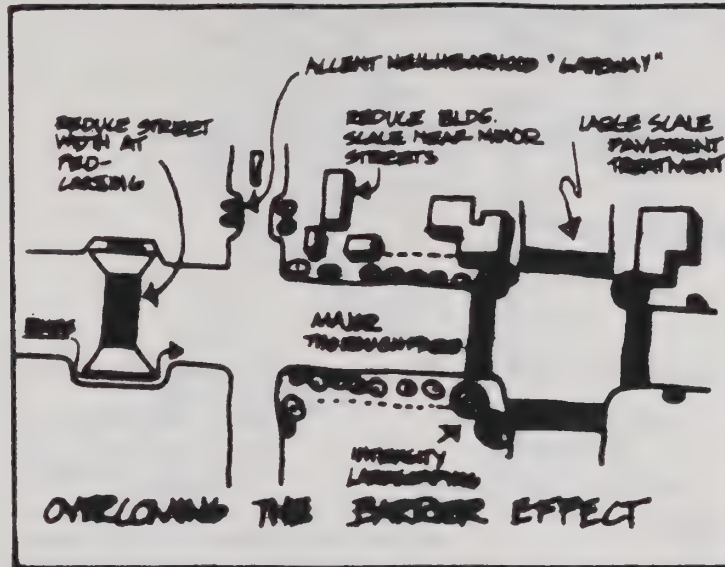 ACCENT NEIGHBOURHOOD "GATEWAY"
REDUCE STREET
WIDTH AT
PED-
REDUCE BLDG.
SCALE NEAR MINOR
STREETS
LARGE SCALE
PAVEMENT
TREATMENT
MAJOR
THOROUGHFARE
LANDSCAPING
OVERCOMING THE BARRIER EFFECT